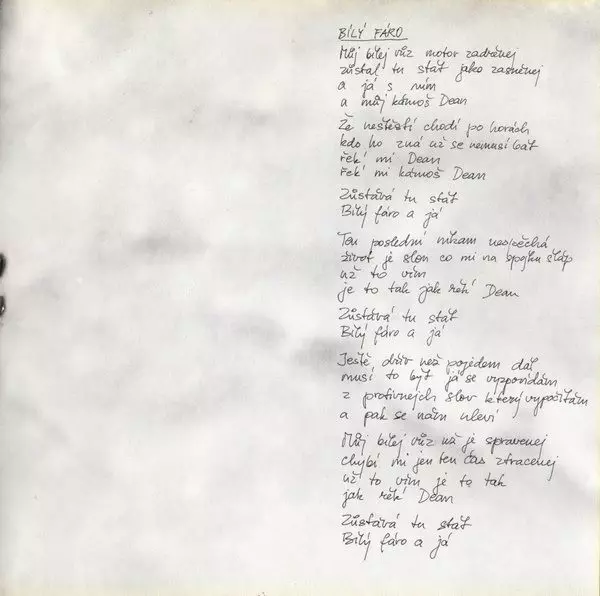 BÍLÝ FÁRO
Můj bílej vůz motor zadřenej
zůstal tu stát jako zasněnej
a já s ním
a můj kámoš Dean
Že neštěstí chodí po horách
kdo ho zná už se nemusí bát
řek' mi Dean
řek' mi kámoš Dean
Zůstává tu stát
Bílý fáro a já
Ten poslední nikam nespěchá
život je slon co mi na spojku šláp
už to vím
je to tak jak řek' Dean
Zůstává tu stát
Bílý fáro a já
Ještě dřív než pojedem dál
musí to být já se vyzpovídám
z protivnejch slov který vypočítám
a pak se nám uleví
Můj bílej vůz už je spravenej
chybí mi jen ten čas ztracenej
už to vím je to tak
jak řek' Dean
Zůstává tu stát
Bílý fáro a já